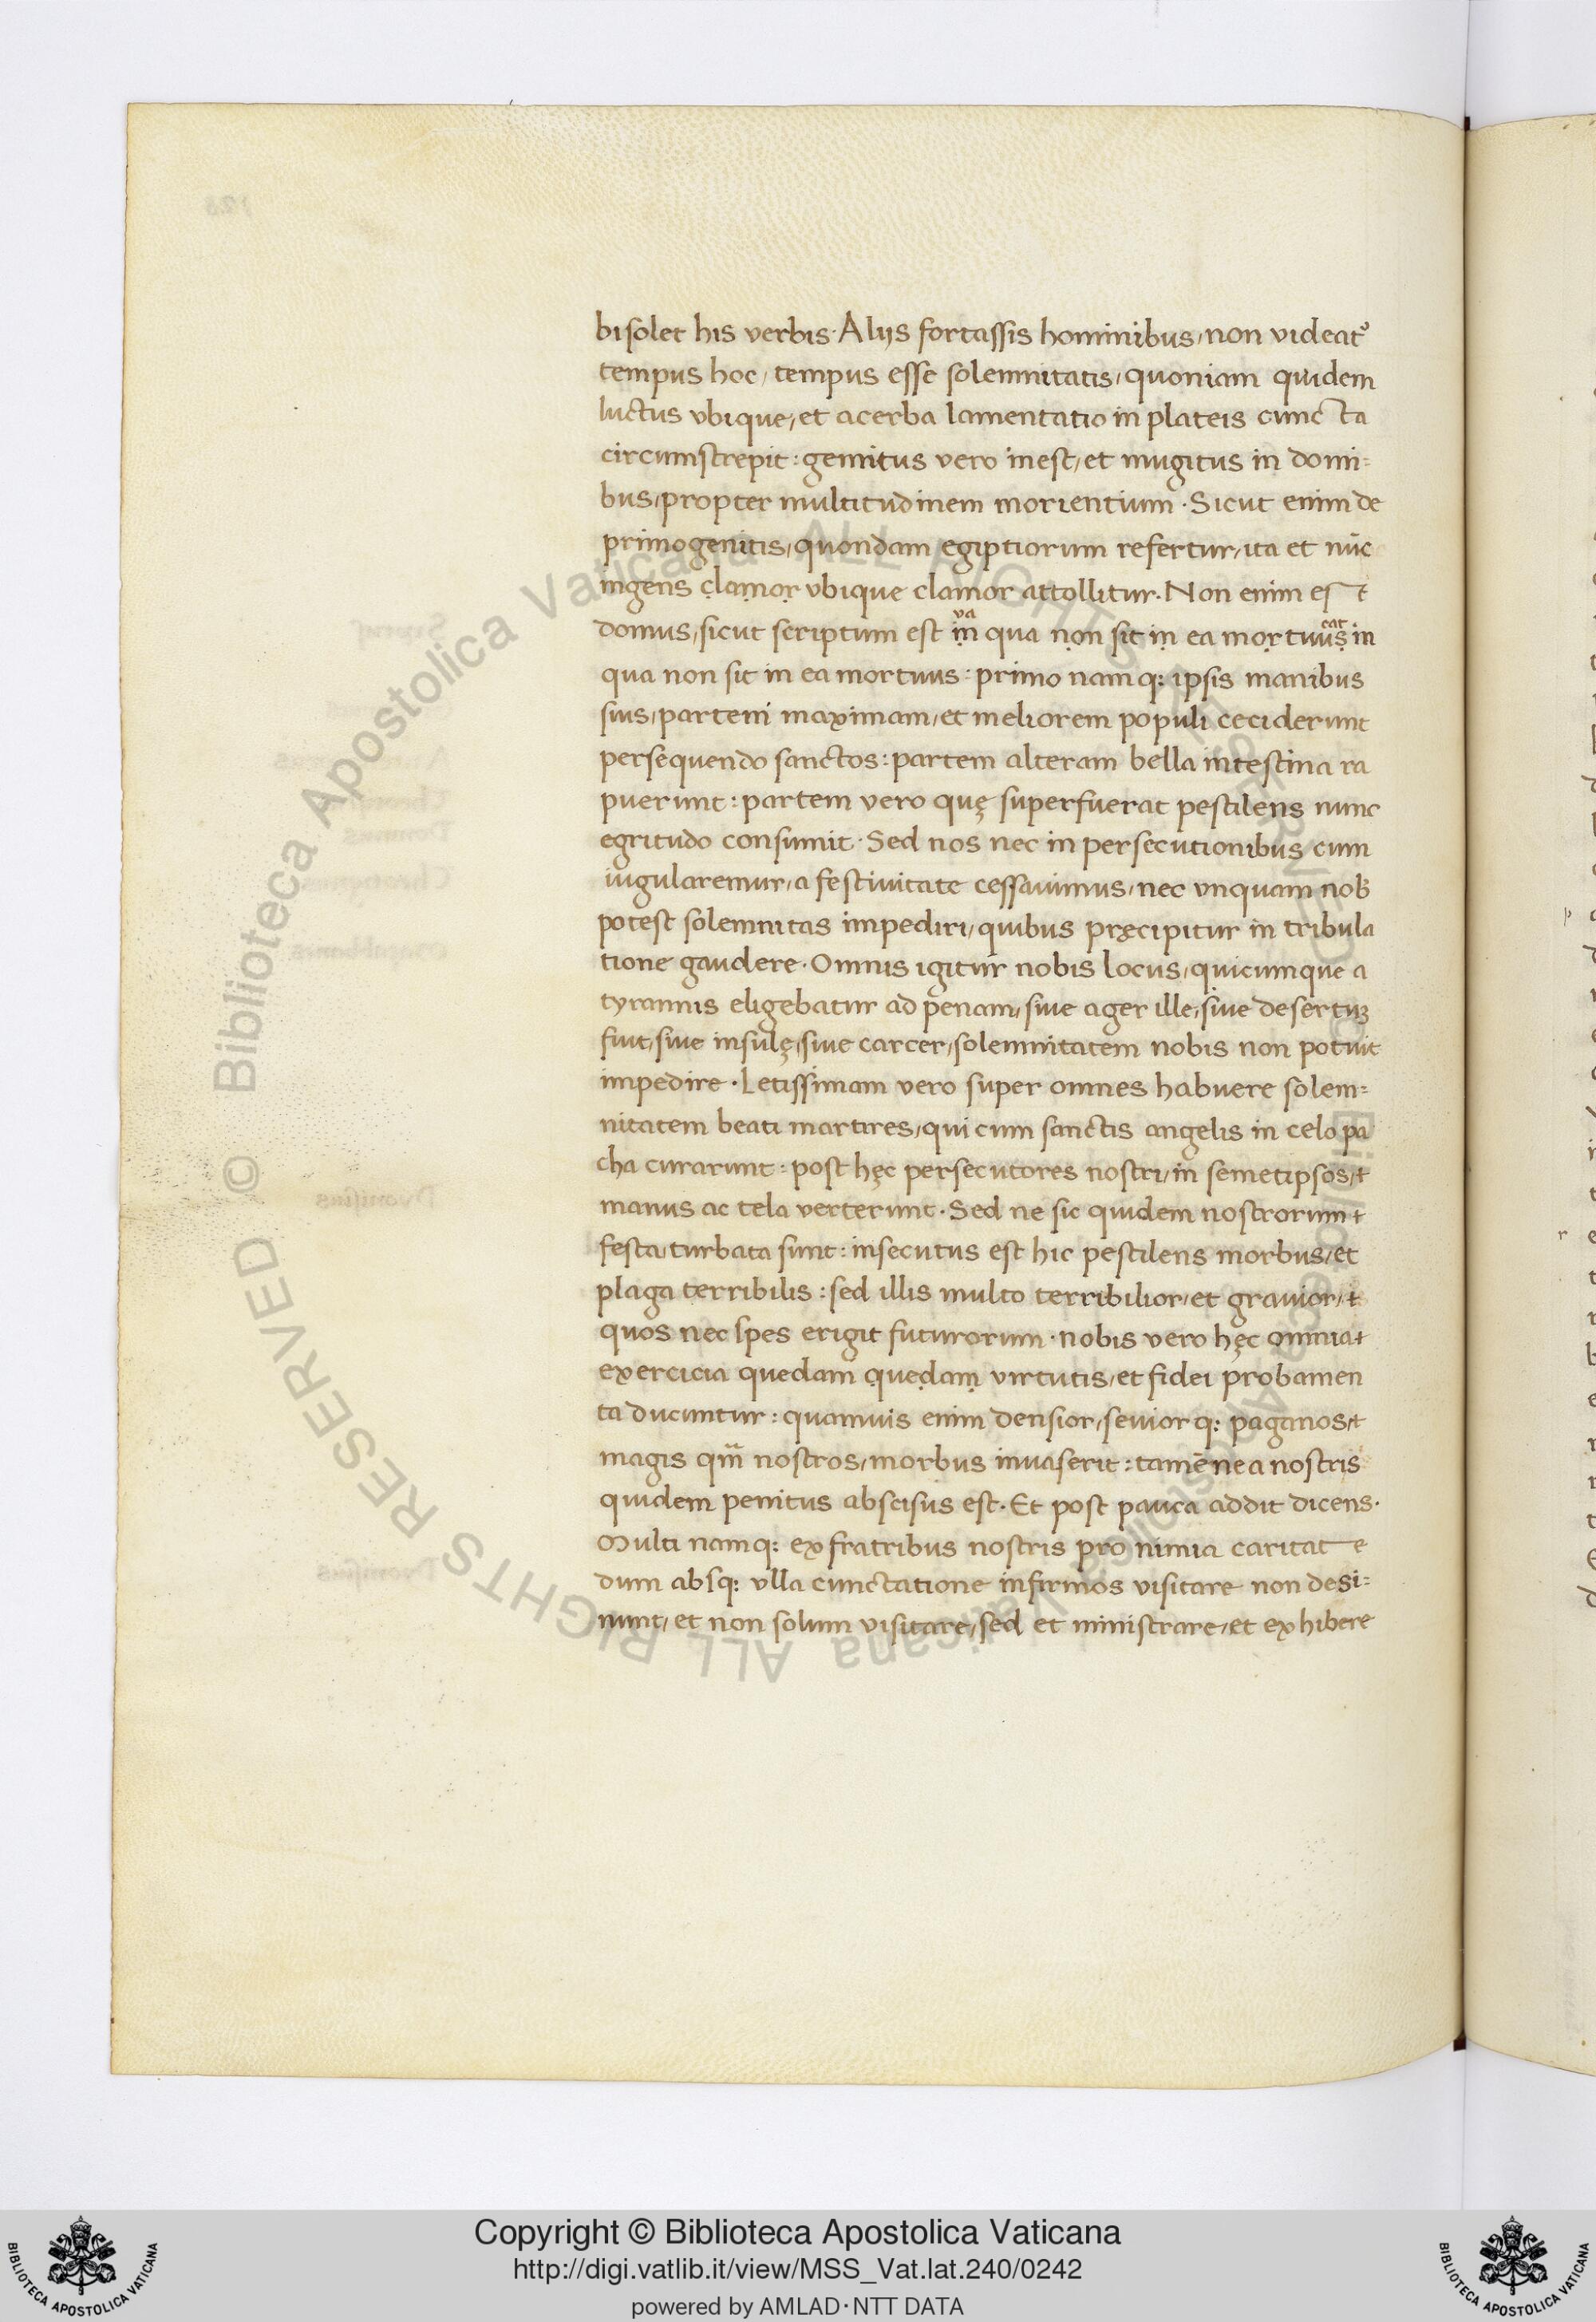 bi solet his verbis · Alijs fortassis hominibus, non videat᷒
tempus hoc, tempus esse solemnitatis, quoniam quidem
luctus vbique, et acerba lamentatio in plateis cuncta
circumstrepit: gemitus vero inest, et mugitus in domi=
bus, propter multitudinem morientium · Sicut enim de
primogenitis, quondam egiptiorum refertur, ita et nūc
ingens clamor vbique clamor attollitur. Non enim est
domus, sicut scriptum est in qua non sit in ea mortuus in
qua non sit in ea mortuus: primo namq: ipsis manibus
suis, partem maximam, et meliorem populi ceciderunt
persequendo sanctos: partem alteram bella intestina ra
puerunt: partem vero quę superfuerat pestilens nunc
egritudo consumit · Sed nos nec in persecutionibus cum
iugularemur, a festiuitate cessauimus, nec vnquam nob̄
potest solemnitas impediri, quibus pręcipitur in tribula
tione gaudere · Omnis igitur nobis locus, quicumque a
tyrannis eligebatur ad penam, siue ager ille, siue desertuꝫ
fuit, siue insulę, siue carcer, solemnitatem nobis non potuit
impedire · Letissimam vero super omnes habuere solem=
nitatem beati martires, qui cum sanctis angelis in celo pa
cha curarunt: post hęc persecutores nostri, in semetipsos,
manus ac tela verterunt · Sed ne sic quidem nostrorum
festa turbata sunt: insecutus est hic pestilens morbus, et
plaga terribilis: sed illis multo terribilior, et grauior,
quos nec spes erigit futurorum · nobis vero hęc omnia
exercicia quedam quedam virtutis, et fidei probamen
ta ducuntur: quamuis enim densior, seuior q: paganos,
magis qm̄ nostros, morbus inuaserit: tamē ne a nostris
quidem penitus abscisus est · Et post pauca addit dicens ·
Multi namq: ex fratribus nostris pro nimia caritate
dum absq: vlla cunctatione infirmos visitare non desi=
nunt, et non solum visitare, sed et ministrare, et exhibere
© Biblioteca Apostolica Vaticana ALL RIGHTS RESERVED
Copyright © Biblioteca Apostolica Vaticana
http://digi.vatlib.it/view/MSS_Vat.lat.240/0242
powered by AMLAD·NTT DATA
BIBLIOTECA APOSTOLICA VATICANA
BIBLIOTECA APOSTOLICA VATICANA